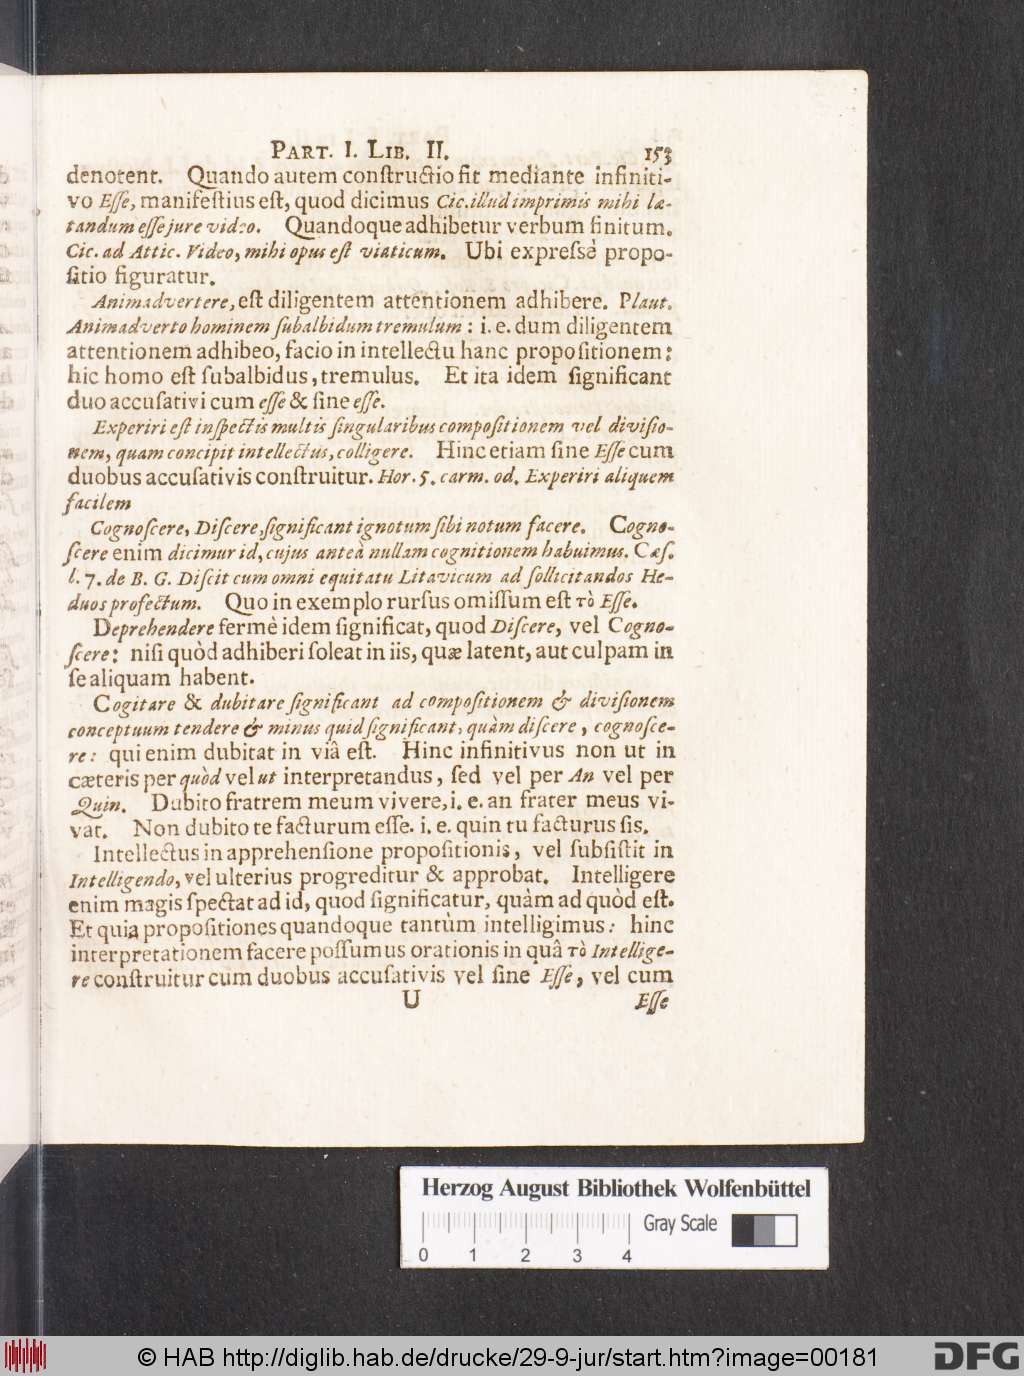 PART. I. LIB. II. 153
denotent. Quando autem constructio fit mediante infiniti-
vo Esse, manifestius est, quod dicimus Cic. illud imprimis mihi læ-
tandum esse jure video. Quandoque adhibetur verbum finitum.
Cic. ad Attic. Video, mihi opus est viaticum. Ubi expressè propo-
sitio figuratur.
Animadvertere, est diligentem attentionem adhibere. Plaut.
Animadverto hominem subalbidum tremulum: i. e. dum diligentem
attentionem adhibeo, facio in intellectu hanc propositionem:
hic homo est subalbidus, tremulus. Et ita idem significant
duo accusativi cum esse & sine esse.
Experiri est inspectis multis singularibus compositionem vel divisio-
nem, quam concipit intellectus, colligere. Hinc etiam sine Esse cum
duobus accusativis construitur. Hor. 5. carm. od. Experiri aliquem
facilem
Cognoscere, Discere, significant ignotum sibi notum facere. Cogno-
scere enim dicimur id, cujus anteà nullam cognitionem habuimus. Cæs.
l. 7. de B. G. Discit cum omni equitatu Litavicum ad sollicitandos He-
duos profectum. Quo in exemplo rursus omissum est τὸ Esse.
Deprehendere fermè idem significat, quod Discere, vel Cogno-
scere: nisi quòd adhiberi soleat in iis, quæ latent, aut culpam in
se aliquam habent.
Cogitare & dubitare significant ad compositionem & divisionem
conceptuum tendere & minus quid significant, quàm discere, cognosce-
re: qui enim dubitat in viâ est. Hinc infinitivus non ut in
cæteris per quòd vel ut interpretandus, sed vel per An vel per
Quin. Dubito fratrem meum vivere, i. e. an frater meus vi-
vat. Non dubito te facturum esse. i. e. quin tu facturus sis.
Intellectus in apprehensione propositionis, vel subsistit in
Intelligendo, vel ulterius progreditur & approbat. Intelligere
enim magis spectat ad id, quod significatur, quàm ad quòd est.
Et quia propositiones quandoque tantùm intelligimus: hinc
interpretationem facere possumus orationis in quâ τὸ Intellige-
re construitur cum duobus accusativis vel sine Esse, vel cum
U Esse
Herzog August Bibliothek Wolfenbüttel
Gray Scale
0 1 2 3 4
© HAB http://diglib.hab.de/drucke/29-9-jur/start.htm?image=00181
DFG